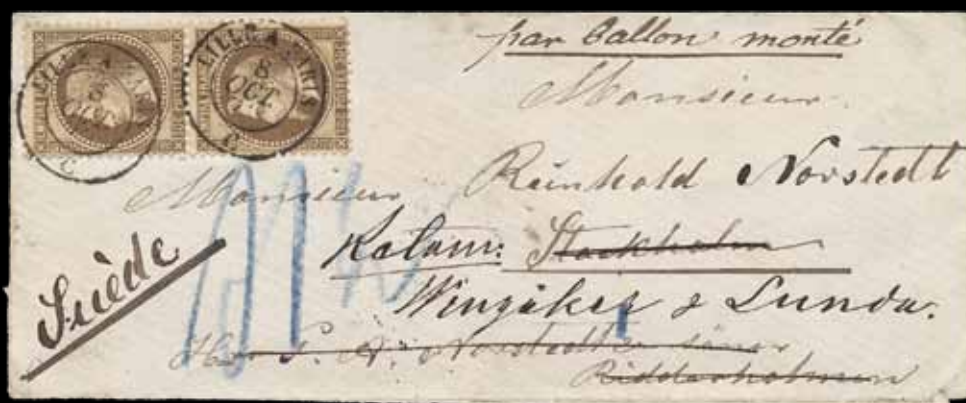 LILLE A PARIS
8
OCT.
LILLE A PARIS
8
OCT.
par Ballon monté
Monsieur
Monsieur Reinhold Norstedt
Suède
Stockholm
Wingåker & Lunda.
P. A. Norstedt & söner
Riddarholmen